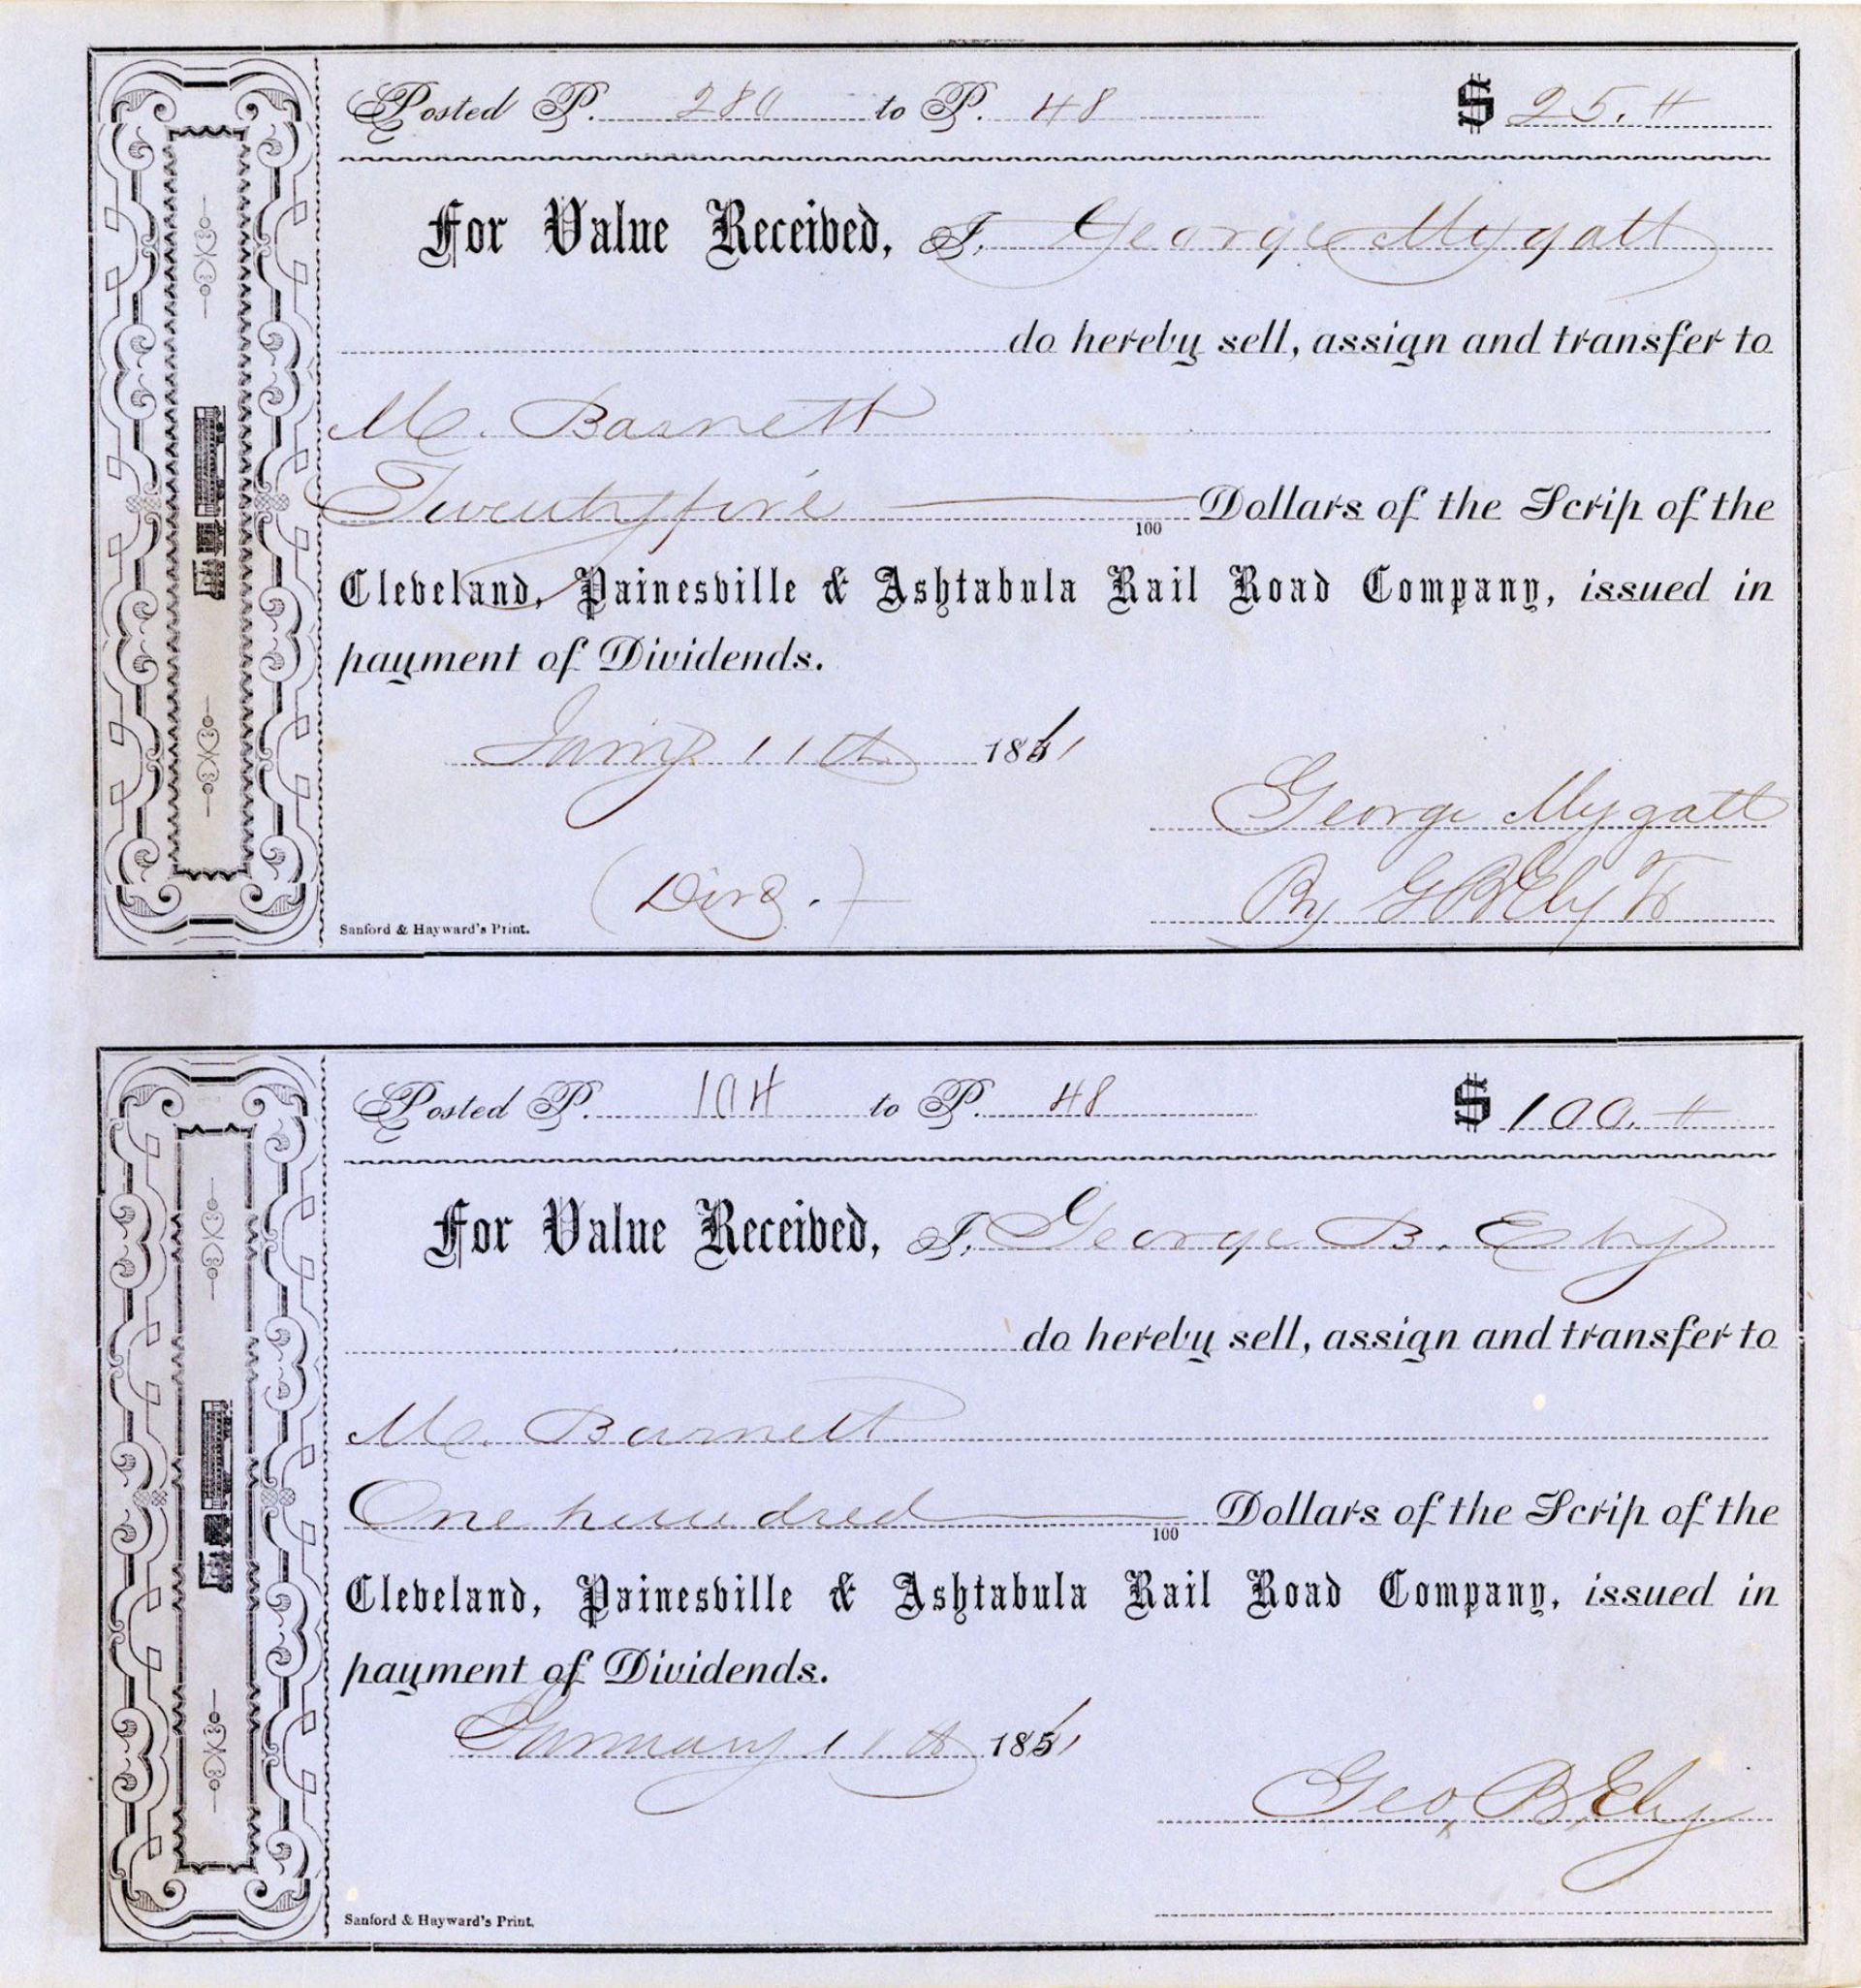 Posted P. 280 to P. 48 $ 25.
For Value Received, I, George Mygatt
do hereby sell, assign and transfer to
M. Barnett
Twentyfive 100 Dollars of the Scrip of the
Cleveland, Painesville & Ashtabula Rail Road Company, issued in
payment of Dividends.
Jany 11th 1861
George Mygatt
By G B Ely Tr
Sanford & Hayward's Print.
Posted P. 104 to P. 48 $ 100.
For Value Received, I, George B. Ely
do hereby sell, assign and transfer to
M. Barnett
One hundred 100 Dollars of the Scrip of the
Cleveland, Painesville & Ashtabula Rail Road Company, issued in
payment of Dividends.
January 11th 1861
Geo, B, Ely
Sanford & Hayward's Print.